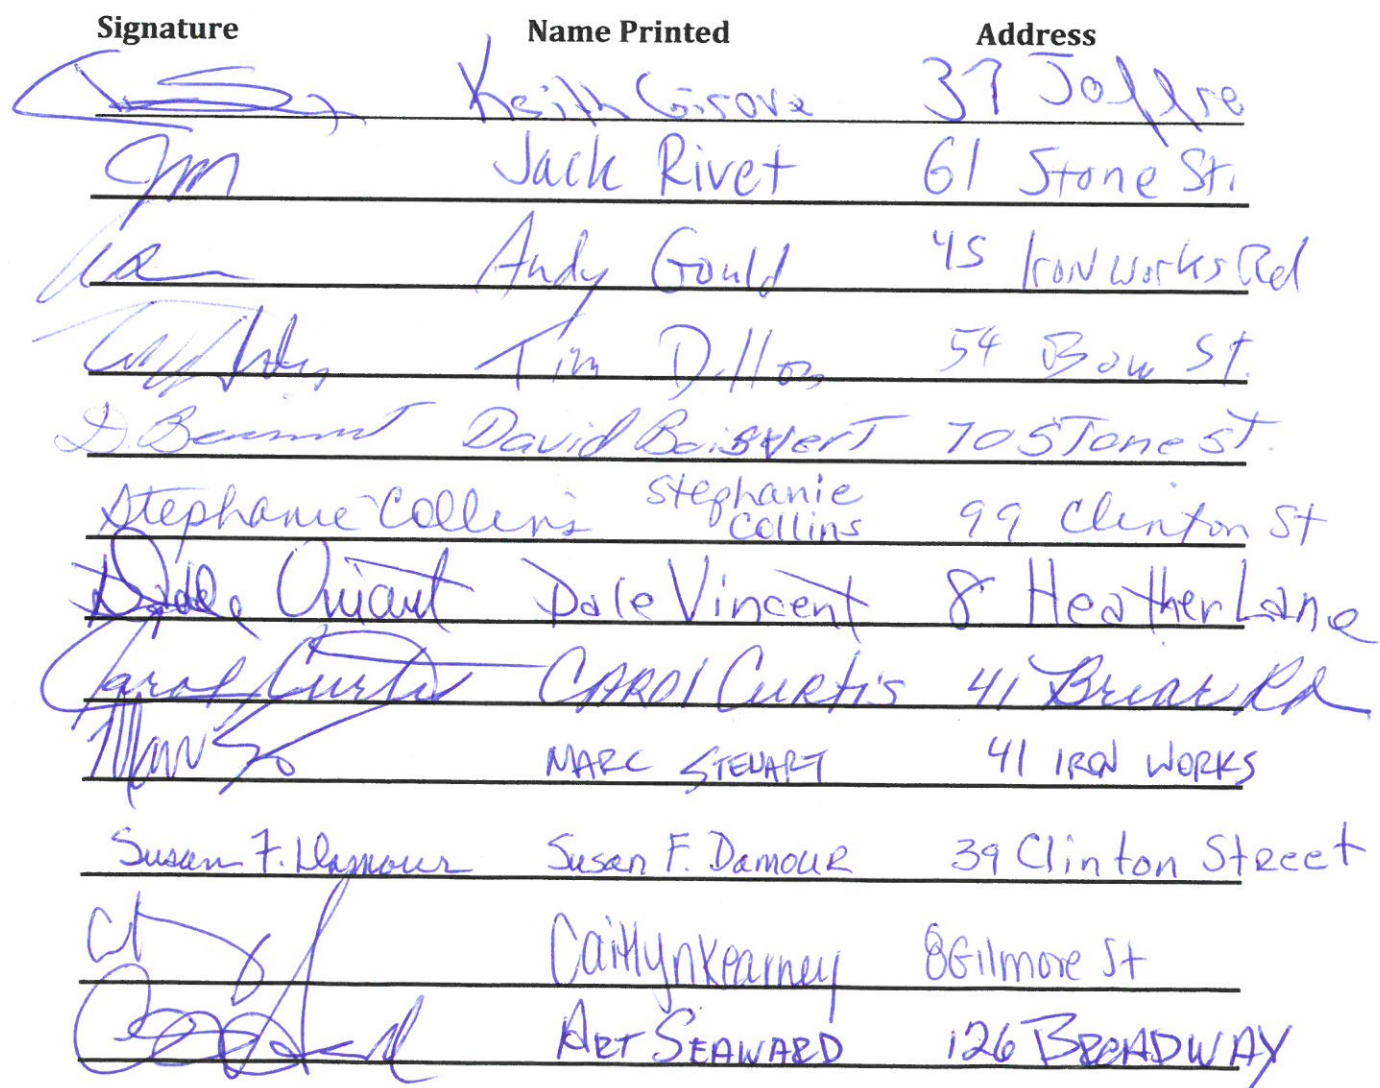 Signature Name Printed Address
Keith Girove 37 Joffre
Jack Rivet 61 Stone St.
Andy Gould 45 Iron works Rd
Tim Dillon 54 Bow St.
D. David Boisvert 70 Stone ST.
Stephanie Collins Stephanie Collins 99 Clinton St
Dale Vincent Dale Vincent 8 Heather Lane
Carol Curtis CAROl CURtis 41 Briar Rd
Marc MARC STEWART 41 IRON WORKS
Susan F. Damour Susan F. DamouR 39 Clinton StReet
Caitlyn Kearney 8 Gilmore St
ART SEAWARD 126 BROADWAY